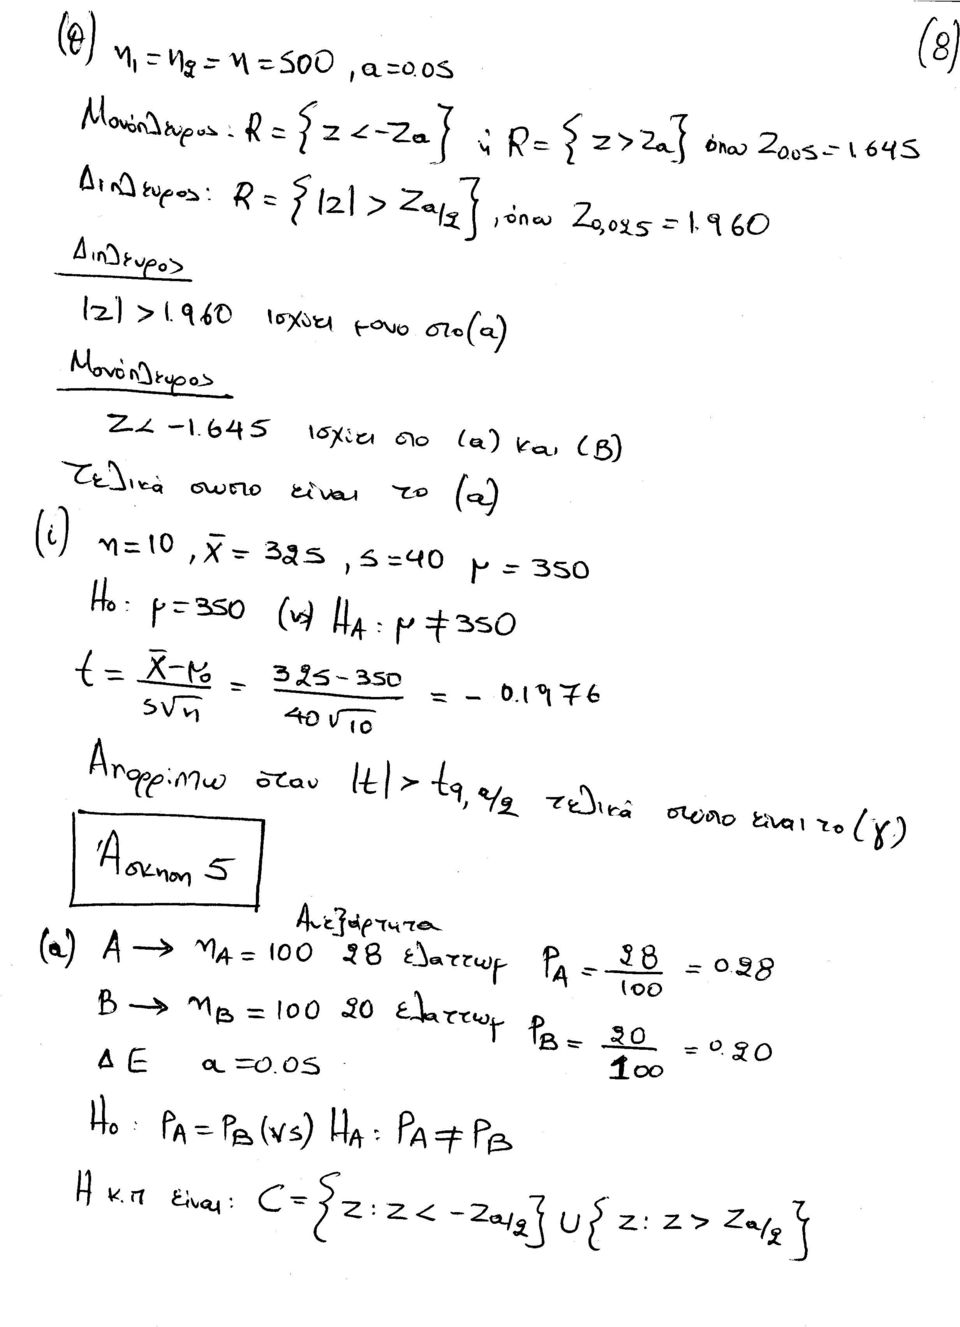 (8)
(θ) n₁ = n₂ = n = 500, a = 0.05
Μονόπλευρος: R = {z < -Za} ή R = {z > Za} όπου Z0.05 = 1.645
Δίπλευρος: R = {|z| > Za/2}, όπου Z0,025 = 1.960
Δίπλευρος
|z| > 1.960 ισχύει μονο στο (a)
Μονόπλευρος
Z < -1.645 ισχύει στο (a) και (B)
Τελικά σωστο είναι το (a)
(i) n = 10, x̄ = 325, s = 40 μ = 350
H₀: μ = 350 (vs) HA: μ ≠ 350
t = (x̄ - μ₀)/(s√n) = (325 - 350)/(40√10) = -0.1976
Απορρίπτω όταν |t| > t9, a/2 τελικά σωστο είναι το (γ)
Άσκηση 5
Ανεξάρτητα
(a) A → nA = 100 28 ελαττωμ PA = 28/100 = 0.28
B → nB = 100 20 ελαττωμ PB = 20/100 = 0.20
ΔE a = 0.05
H₀: PA = PB (vs) HA: PA ≠ PB
Η κ.π είναι: C = {z: z < -Za/2} ∪ {z: z > Za/2}